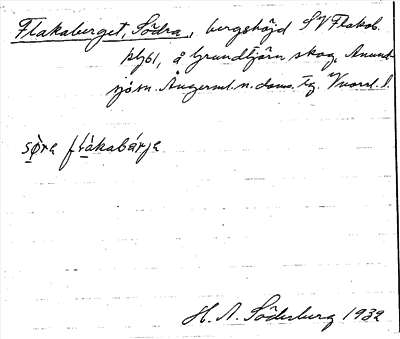 Flakaberget, Södra, bergshöjd SV Flakab.
å Grundtjärn skog, Anund-
sjö sn. Ångerml. n. doms. tg. V.norrl. l.
sø̀ra flàkabárja
H. A. Söderberg 1932